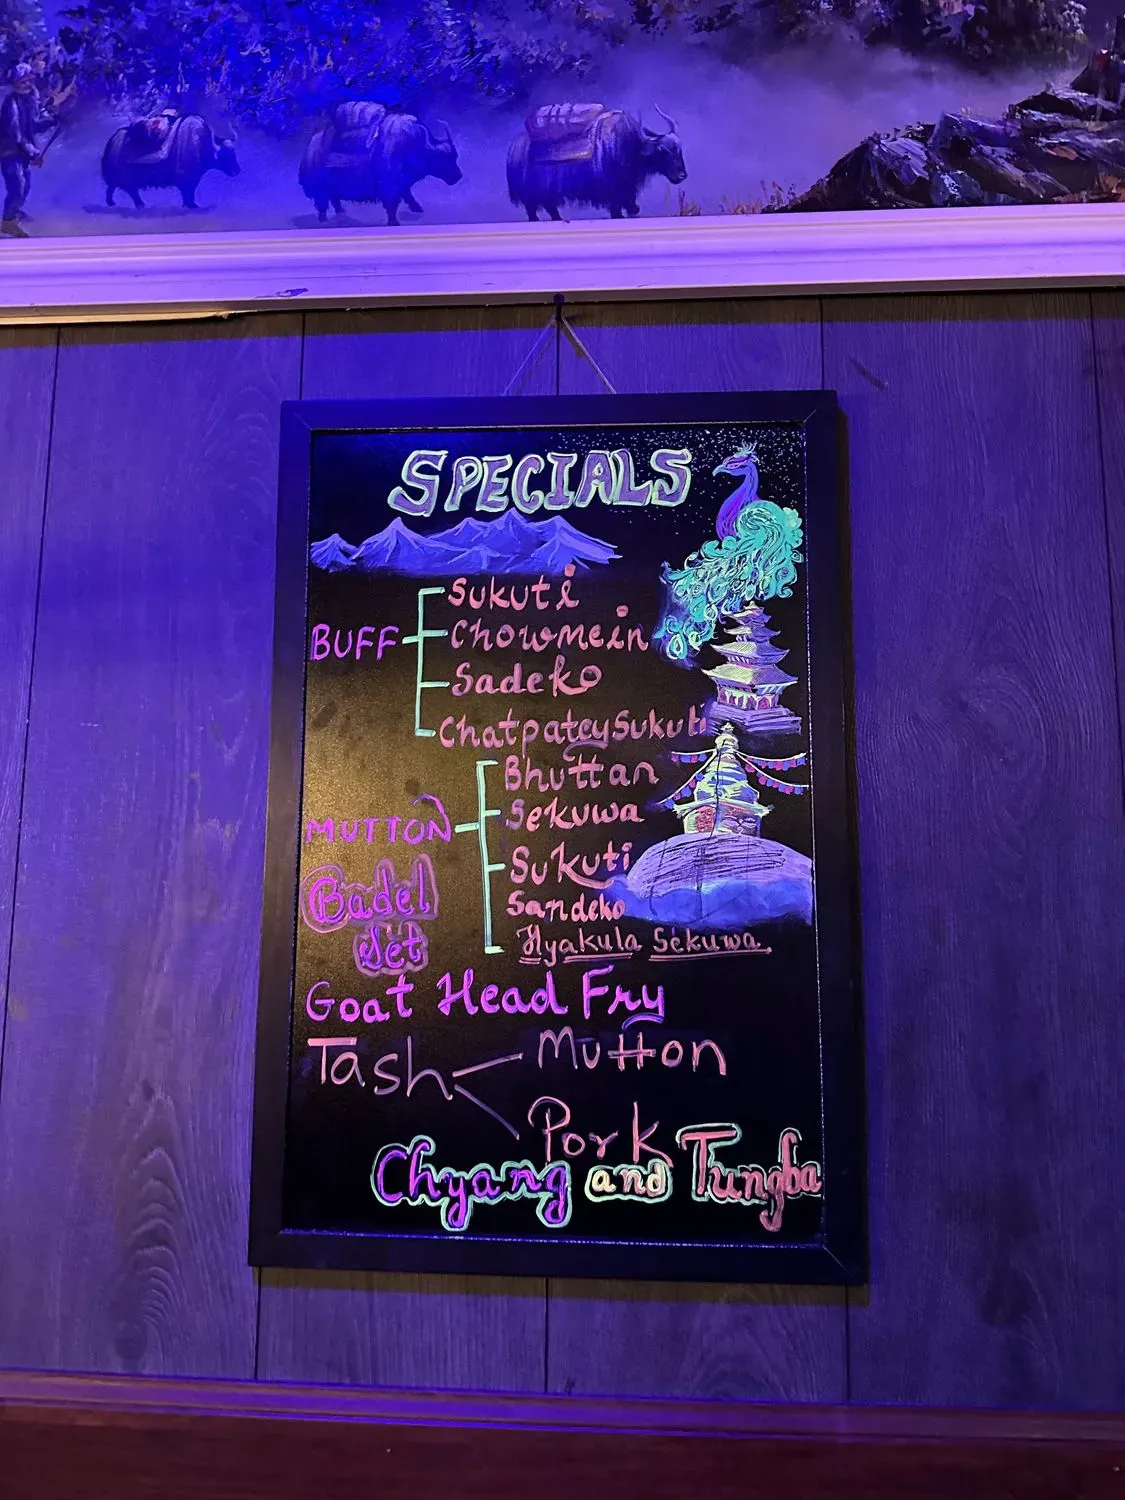 SPECIALS
BUFF
Sukuti
Chowmein
Sadeko
Chatpatey Sukuti
MUTTON
Bhuttan
Sekuwa
Sukuti
Sandeko
Hyakula Sekuwa
Badel
Set
Goat Head Fry
Tash
Mutton
Pork
Chyang and Tungba